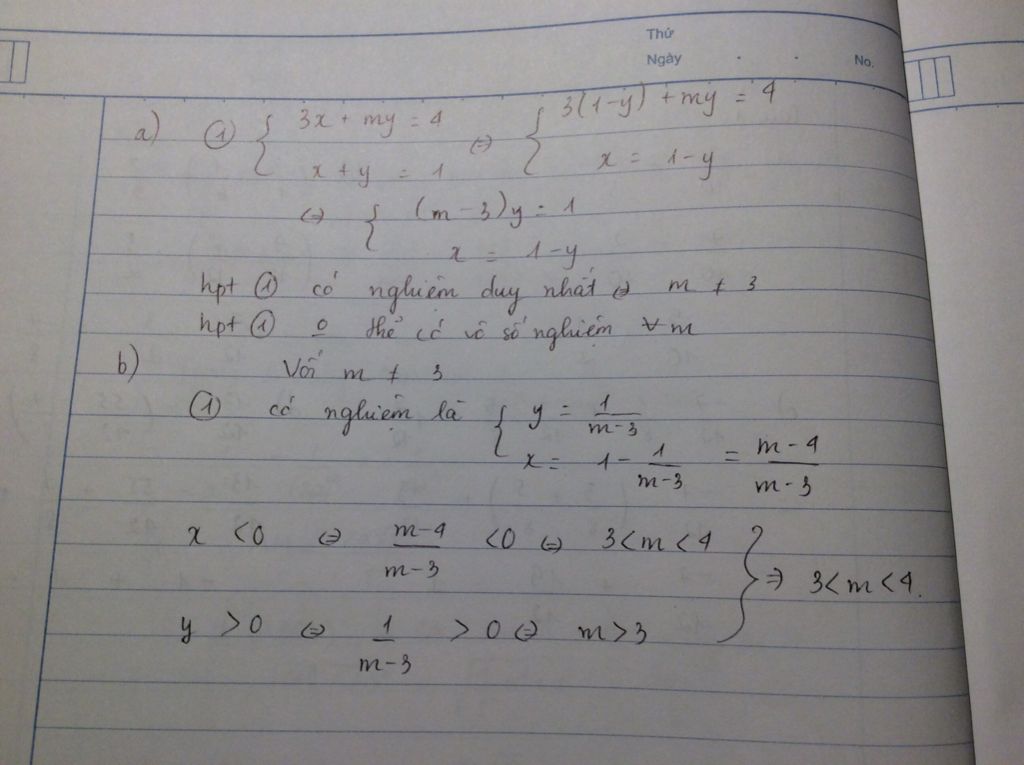 Thứ
Ngày . . No.
a) ① { 3x + my = 4 ⇔ { 3(1-y) + my = 4
x + y = 1 x = 1 - y
⇔ { (m - 3)y = 1
x = 1 - y
hpt ① có nghiệm duy nhất ⇔ m ≠ 3
hpt ① o thể có vô số nghiệm ∀ m
b) Với m ≠ 3
① có nghiệm là { y = 1/(m-3)
x = 1 - 1/(m-3) = (m-4)/(m-3)
x < 0 ⇔ (m-4)/(m-3) < 0 ⇔ 3 < m < 4 } ⇒ 3 < m < 4.
y > 0 ⇔ 1/(m-3) > 0 ⇔ m > 3